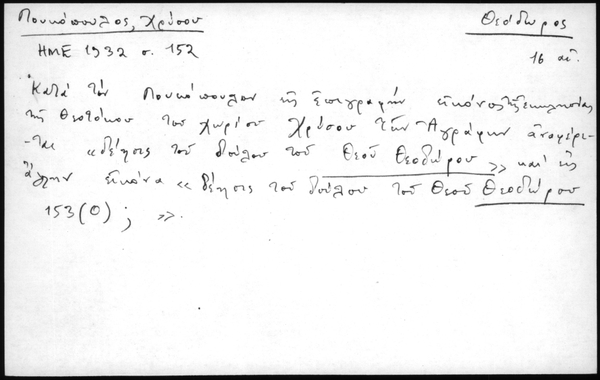 Πουκόπουλος, Χρύσου
Θεόδωρος
ΗΜΕ 1932 σ. 152
16 αἰ.
Κατά τόν Πουκόπουλον εἰς ἐπιγραφήν εἰκόνος τῆς ἐκκλησίας
τῆς Θεοτόκου τοῦ χωρίου Χρύσου τῶν Ἀγράφων ἀναφέρε-
-ται «δέησις τοῦ δούλου τοῦ Θεοῦ Θεοδώρου» καί εἰς
ἄλλην εἰκόνα «δέησις τοῦ δούλου τοῦ Θεοῦ Θεοδώρου
153(0); ».